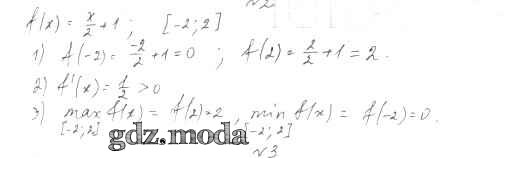 №2.
f(x) = x/2 + 1 ; [-2; 2]
1) f(-2) = -2/2 + 1 = 0 ; f(2) = 2/2 + 1 = 2.
2) f'(x) = 1/2 > 0
3) max f(x) = f(2) = 2, min f(x) = f(-2) = 0.
[-2; 2] [-2; 2]
gdz.moda
№3